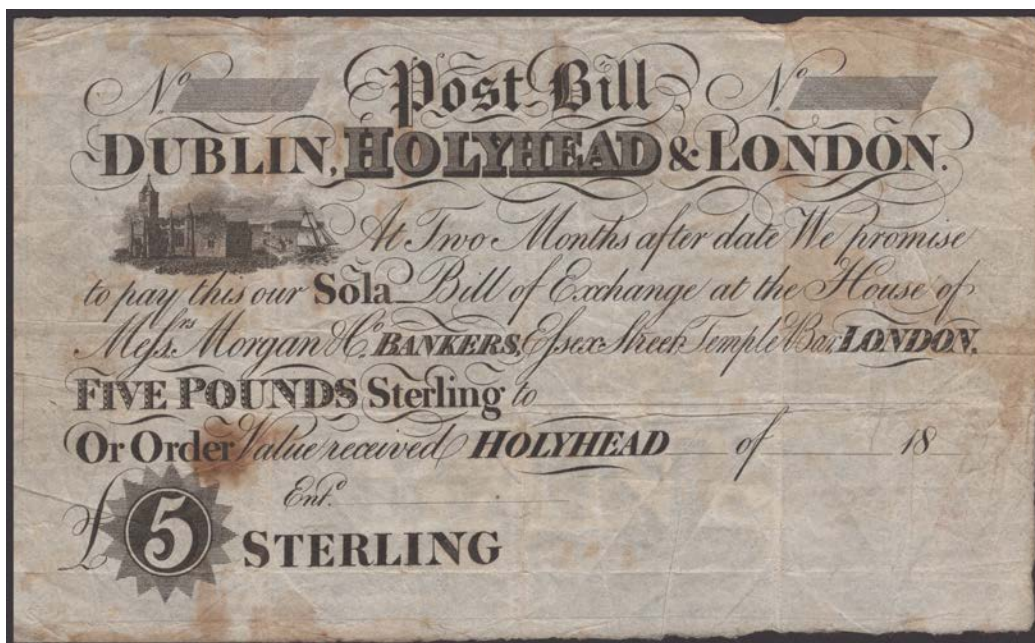 No. Post Bill No.
DUBLIN, HOLYHEAD & LONDON.
At Two Months after date We promise
to pay this our Sola Bill of Exchange at the House of
Messrs. Morgan & Co. BANKERS, Essex Street, Temple Bar, LONDON,
FIVE POUNDS Sterling to
Or Order Value received HOLYHEAD of 18
Entd.
£5 STERLING